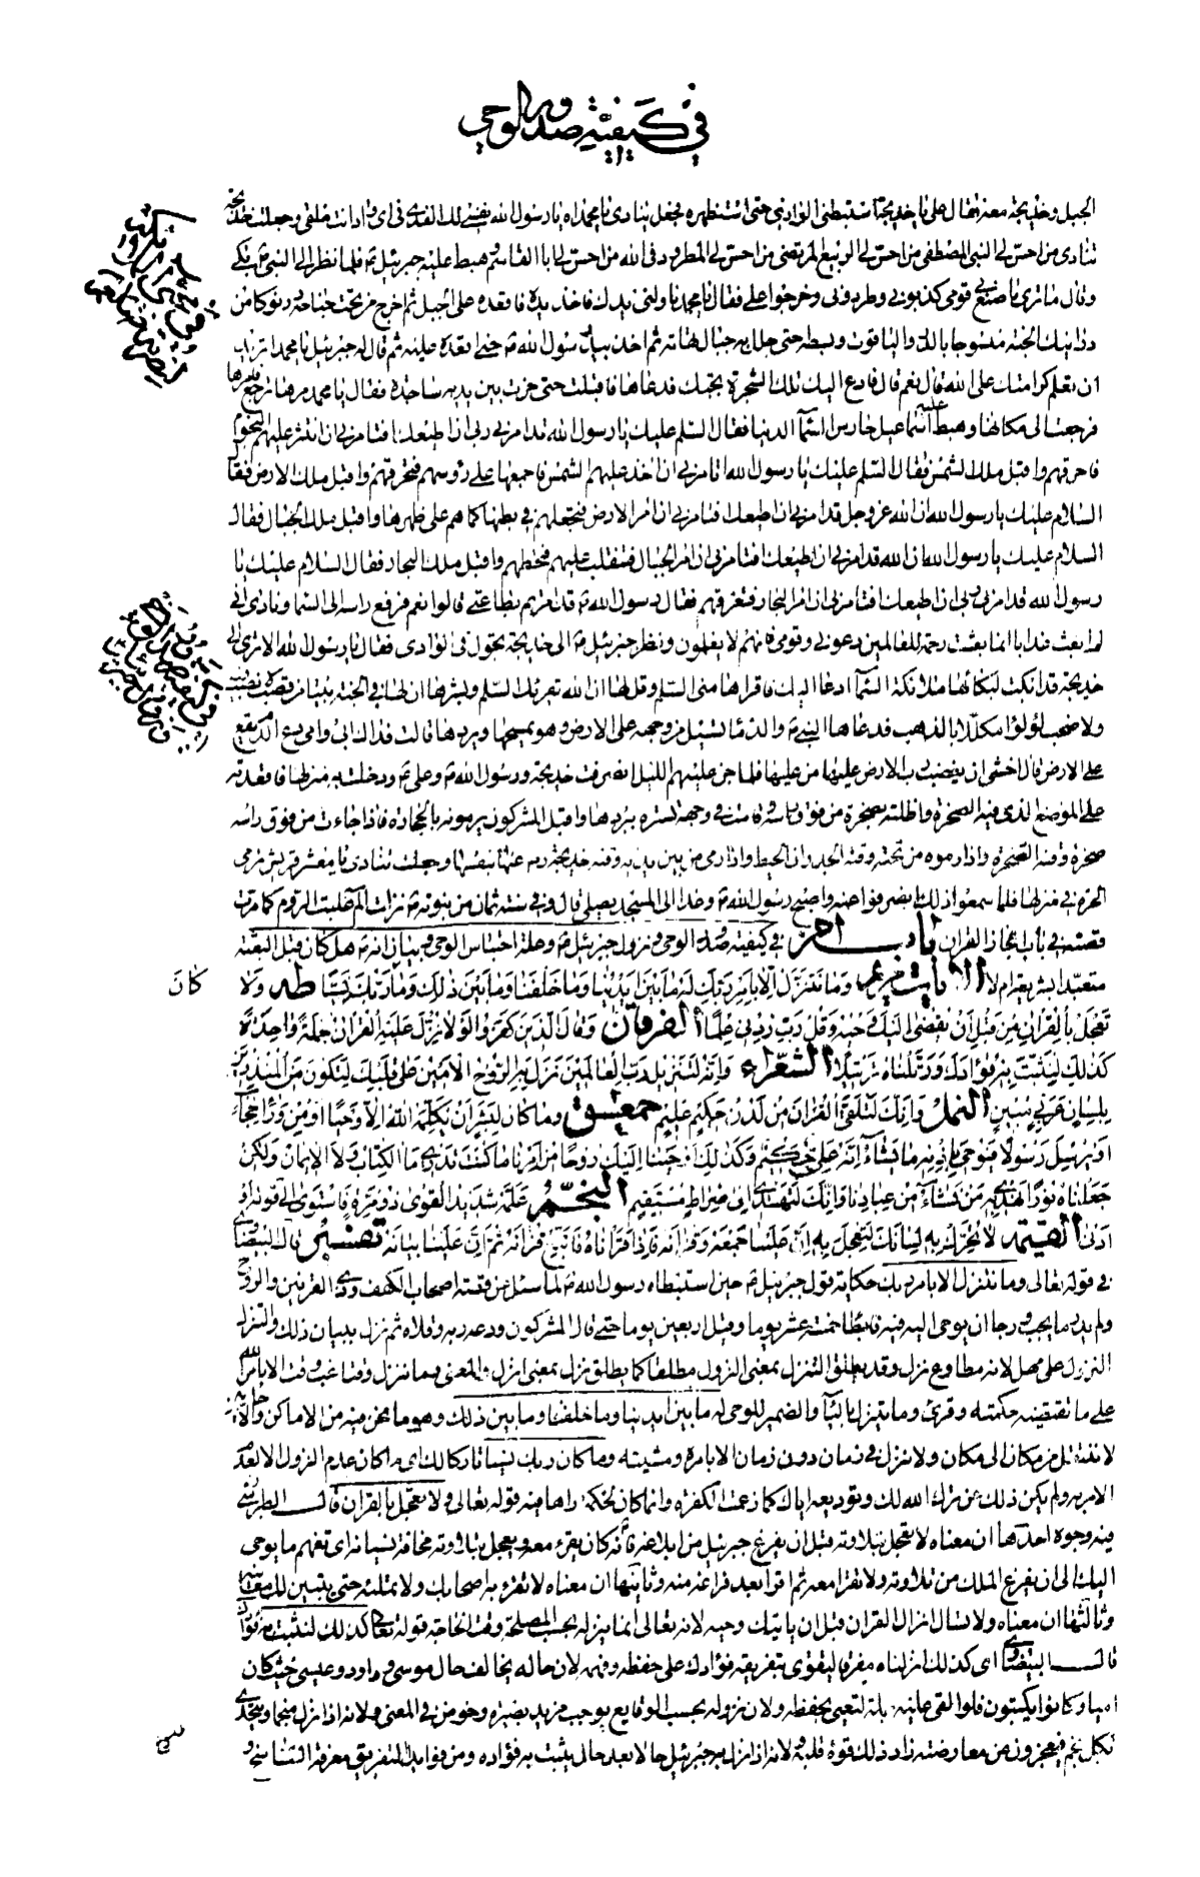 في كيفية صدور الوحي
الجبل وخديجة معه فقال علي يا خديجة استبطني الوادي حتى استظهره فجعل ينادي يا محمداه يا رسول الله نفسي لك الفداء في اي واد انت ملقى وجعلت خديجة
تنادي من احس لي النبي المصطفى من احس لي الربيع المرتضى من احس لي المطرود في الله من احس لي ابا القاسم وهبط عليه جبرئيل ع فلما نظر الى النبي ص بكى
وقال ما ترى ما صنع بي قومي كذبوني وطردوني وخرجوا علي فقال يا محمد ناولني يدك فاخذ يده فاقعده على الجبل ثم اخرج من تحت جناحه درنوكا من
درانيك الجنة منسوجا بالدر والياقوت وبسطه حتى جلل به جبال تهامة ثم اخذ بيد رسول الله ص حتى اقعده عليه ثم قال له جبرئيل يا محمد اتريد
ان تعلم كرامتك على الله قال نعم قال فادع اليك تلك الشجرة تجبك فدعاها فاقبلت حتى خرت بين يديه ساجدة فقال يا محمد مرها ترجع فامرها
فرجعت الى مكانها وهبط عليه اسماعيل حارس السماء الدنيا فقال السلم عليك يا رسول الله قد امرني ربي ان اطيعك افتأمرني ان انثر عليهم النجوم
فاحرقهم واقبل ملك الشمس فقال السلم عليك يا رسول الله اتأمرني ان اخذ عليهم الشمس فاجمعها على رؤوسهم فتحرقهم واقبل ملك الارض فقال
السلام عليك يا رسول الله ان الله عز وجل قد امرني ان اطيعك افتأمرني ان امر الارض فتجعلهم في بطنها كما هم على ظهرها واقبل ملك الجبال فقال
السلام عليك يا رسول الله ان الله قد امرني ان اطيعك افتأمرني ان امر الجبال فتنقلب عليهم فتحطمهم واقبل ملك البحار فقال السلام عليك يا
رسول الله قد امرني ربي ان اطيعك افتأمرني ان امر البحار فتغرقهم فقال رسول الله ص قد امرتم بطاعتي قالوا نعم فرفع راسه الى السماء ونادى اني
لم ابعث عذابا انما بعثت رحمة للعالمين دعوني وقومي فانهم لا يعلمون ونظر جبرئيل ع الى خديجة تجول في الوادي فقال يا رسول الله الا ترى الى
خديجة قد ابكت لبكائها ملائكة السماء ادعها اليك فاقراها مني السلم وقل لها ان الله يقرئك السلم وبشرها ان لها في الجنة بيتا من قصب لا نصب فيه
ولا صخب لؤلؤا مكللا بالذهب فدعاها النبي ص والدماء تسيل من وجهه على الارض وهو يمسحها ويردها قالت فداك ابي وامي دع الدم يقع
على الارض قال اخشى ان يغضب رب الارض على من عليها فلما جن عليهم الليل انصرفت خديجة ورسول الله ص وعلي ع ودخلت به منزلها فاقعدته
على الموضع الذي فيه الصخرة واظلته بصخرة من فوق راسه وقامت في وجهه تستره ببردها واقبل المشركون يرمونه بالحجارة فاذا جاءت من فوق راسه
صخرة وقته الصخرة واذا رموه من تحته وقته الجدران الحيط واذا رمي من بين يديه وقته خديجة رض عنها بنفسها وجعلت تنادي يا معشر قريش ترمى
الحرة في منزلها فلما سمعوا ذلك انصرفوا عنه واصبح رسول الله ص وغدا الى المسجد يصلي قال وفي سنة ثمان من نبوته ص نزلت الم غلبت الروم كما مرت
قصته في باب اعجاز القران باب اخر في كيفية صدور الوحي ونزول جبرئيل ع وعلة احتباس الوحي وبيان انه ص هل كان قبل البعثة
متعبدا بشريعة ام لا الايات مريم وَمَا نَتَنَزَّلُ إِلَّا بِأَمْرِ رَبِّكَ لَهُ مَا بَيْنَ أَيْدِينَا وَمَا خَلْفَنَا وَمَا بَيْنَ ذٰلِكَ وَمَا كَانَ رَبُّكَ نَسِيًّا طه وَلَا
كانَ
تَعْجَلْ بِالْقُرْآنِ مِنْ قَبْلِ أَنْ يُقْضَى إِلَيْكَ وَحْيُهُ وَقُلْ رَبِّ زِدْنِي عِلْمًا الفرقان وَقَالَ الَّذِينَ كَفَرُوا لَوْلَا نُزِّلَ عَلَيْهِ الْقُرْآنُ جُمْلَةً وَاحِدَةً
كَذٰلِكَ لِنُثَبِّتَ بِهِ فُؤَادَكَ وَرَتَّلْنَاهُ تَرْتِيلًا الشعراء وَإِنَّهُ لَتَنْزِيلُ رَبِّ الْعَالَمِينَ نَزَلَ بِهِ الرُّوحُ الْأَمِينُ عَلَى قَلْبِكَ لِتَكُونَ مِنَ الْمُنْذِرِينَ
بِلِسَانٍ عَرَبِيٍّ مُبِينٍ النمل وَإِنَّكَ لَتُلَقَّى الْقُرْآنَ مِنْ لَدُنْ حَكِيمٍ عَلِيمٍ حمعسق وَمَا كَانَ لِبَشَرٍ أَنْ يُكَلِّمَهُ اللهُ إِلَّا وَحْيًا أَوْ مِنْ وَرَاءِ حِجَابٍ
أَوْ يُرْسِلَ رَسُولًا فَيُوحِيَ بِإِذْنِهِ مَا يَشَاءُ إِنَّهُ عَلِيٌّ حَكِيمٌ وَكَذٰلِكَ أَوْحَيْنَا إِلَيْكَ رُوحًا مِنْ أَمْرِنَا مَا كُنْتَ تَدْرِي مَا الْكِتَابُ وَلَا الْإِيمَانُ وَلٰكِنْ
جَعَلْنَاهُ نُورًا نَهْدِي بِهِ مَنْ نَشَاءُ مِنْ عِبَادِنَا وَإِنَّكَ لَتَهْدِي إِلَى صِرَاطٍ مُسْتَقِيمٍ النجم عَلَّمَهُ شَدِيدُ الْقُوَى ذُو مِرَّةٍ فَاسْتَوَى الى قوله او
ادنى القيمة لَا تُحَرِّكْ بِهِ لِسَانَكَ لِتَعْجَلَ بِهِ إِنَّ عَلَيْنَا جَمْعَهُ وَقُرْآنَهُ فَإِذَا قَرَأْنَاهُ فَاتَّبِعْ قُرْآنَهُ ثُمَّ إِنَّ عَلَيْنَا بَيَانَهُ تفسير قال البيضاوي
في قوله تعالى وما نتنزل الا بامر ربك حكاية قول جبرئيل ع حين استبطاه رسول الله ص لما سئل عن قصة اصحاب الكهف وذي القرنين والروح
ولم يدر ما يجيب ورجا ان يوحى اليه فيه فابطا خمسة عشر يوما وقيل اربعين يوما حتى قال المشركون ودعه ربه وقلاه ثم نزل ببيان ذلك والتنزل
النزول على مهل لانه مطاوع نزل وقد يطلق التنزل بمعنى النزول مطلقا كما يطلق نزل بمعنى انزل والمعنى وما نتنزل وقتا غب وقت الا بامر الله
على ما تقتضيه حكمته وقرئ وما يتنزل بالياء والضمير للوحي له ما بين ايدينا وما خلفنا وما بين ذلك وهو ما نحن فيه من الاماكن والاحايين
لا ننتقل من مكان الى مكان ولا ننزل في زمان دون زمان الا بامره ومشيته وما كان ربك نسيا تاركا لك اي ما كان عدم النزول الا لعدم
الامر به ولم يكن ذلك عن ترك الله لك وتوديعه اياك كما زعمت الكفرة وانما كان لحكمة راها فيه قوله تعالى ولا تعجل بالقران قال الطبرسي
فيه وجوه احدها ان معناه لا تعجل بتلاوته قبل ان يفرغ جبرئيل من ابلاغه فانه كان يقرء معه ويعجل بتلاوته مخافة نسيانه اي تفهم ما يوحى
اليك الى ان يفرغ الملك من تلاوته ولا تقرا معه ثم اقرا بعد فراغه منه وثانيها ان معناه لا تقرء به اصحابك ولا تمله حتى يتبين لك معانيه
وثالثها ان معناه ولا تسال انزال القران قبل ان ياتيك وحيه لانه تعالى انما ينزله بحسب المصلحة وقت الحاجة قوله تعالى كذلك لنثبت به فؤادك
قال البيضاوي اي كذلك انزلناه مفرقا لنقوى بتفريقه فؤادك على حفظه وفهمه لان حاله يخالف حال موسى وداود وعيسى حيث كان
اميا وكانوا يكتبون فلو القي عليه جملة لتعيى بحفظه ولان نزوله بحسب الوقايع يوجب مزيد بصيرة وخوض في المعنى ولانه اذا نزل منجما ويتحدى
بكل نجم فيعجزون عن معارضته زاد ذلك قوة قلبه ولانه اذا نزل به جبرئيل حالا بعد حال يثبت به فؤاده ومن فوايد التفريق معرفة الناسخ و